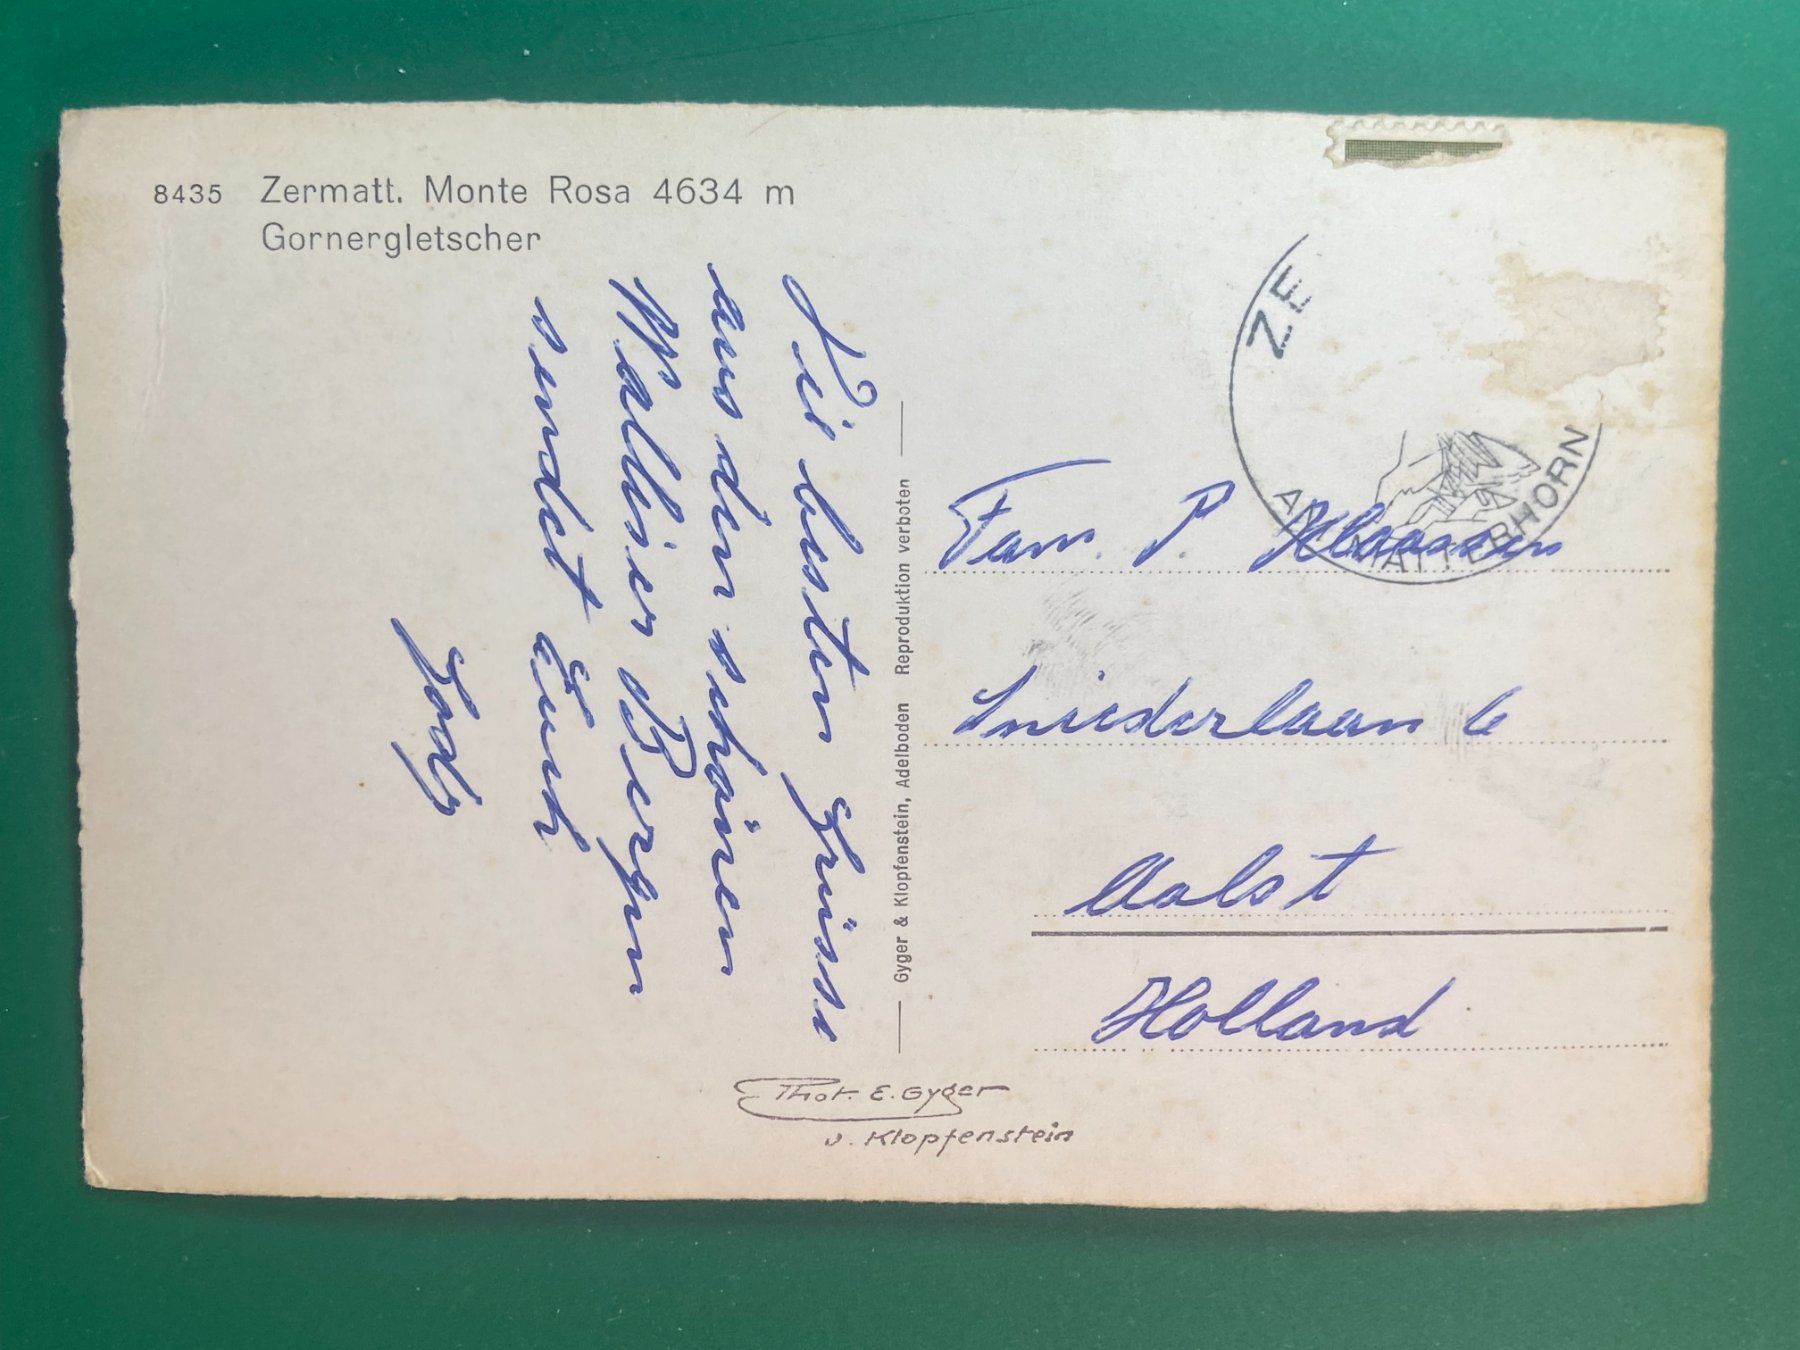 8435 Zermatt. Monte Rosa 4634 m
Gornergletscher
Die besten Grüsse
aus den schönen
Walliser Bergen
sendet Euch
Gyger & Klopfenstein, Adelboden Reproduktion verboten
ZE
MATTERHORN
Fam. P. Klaassen
Sniederlaan 6
Aalst
Holland
Phot. E. Gyger
u. Klopfenstein